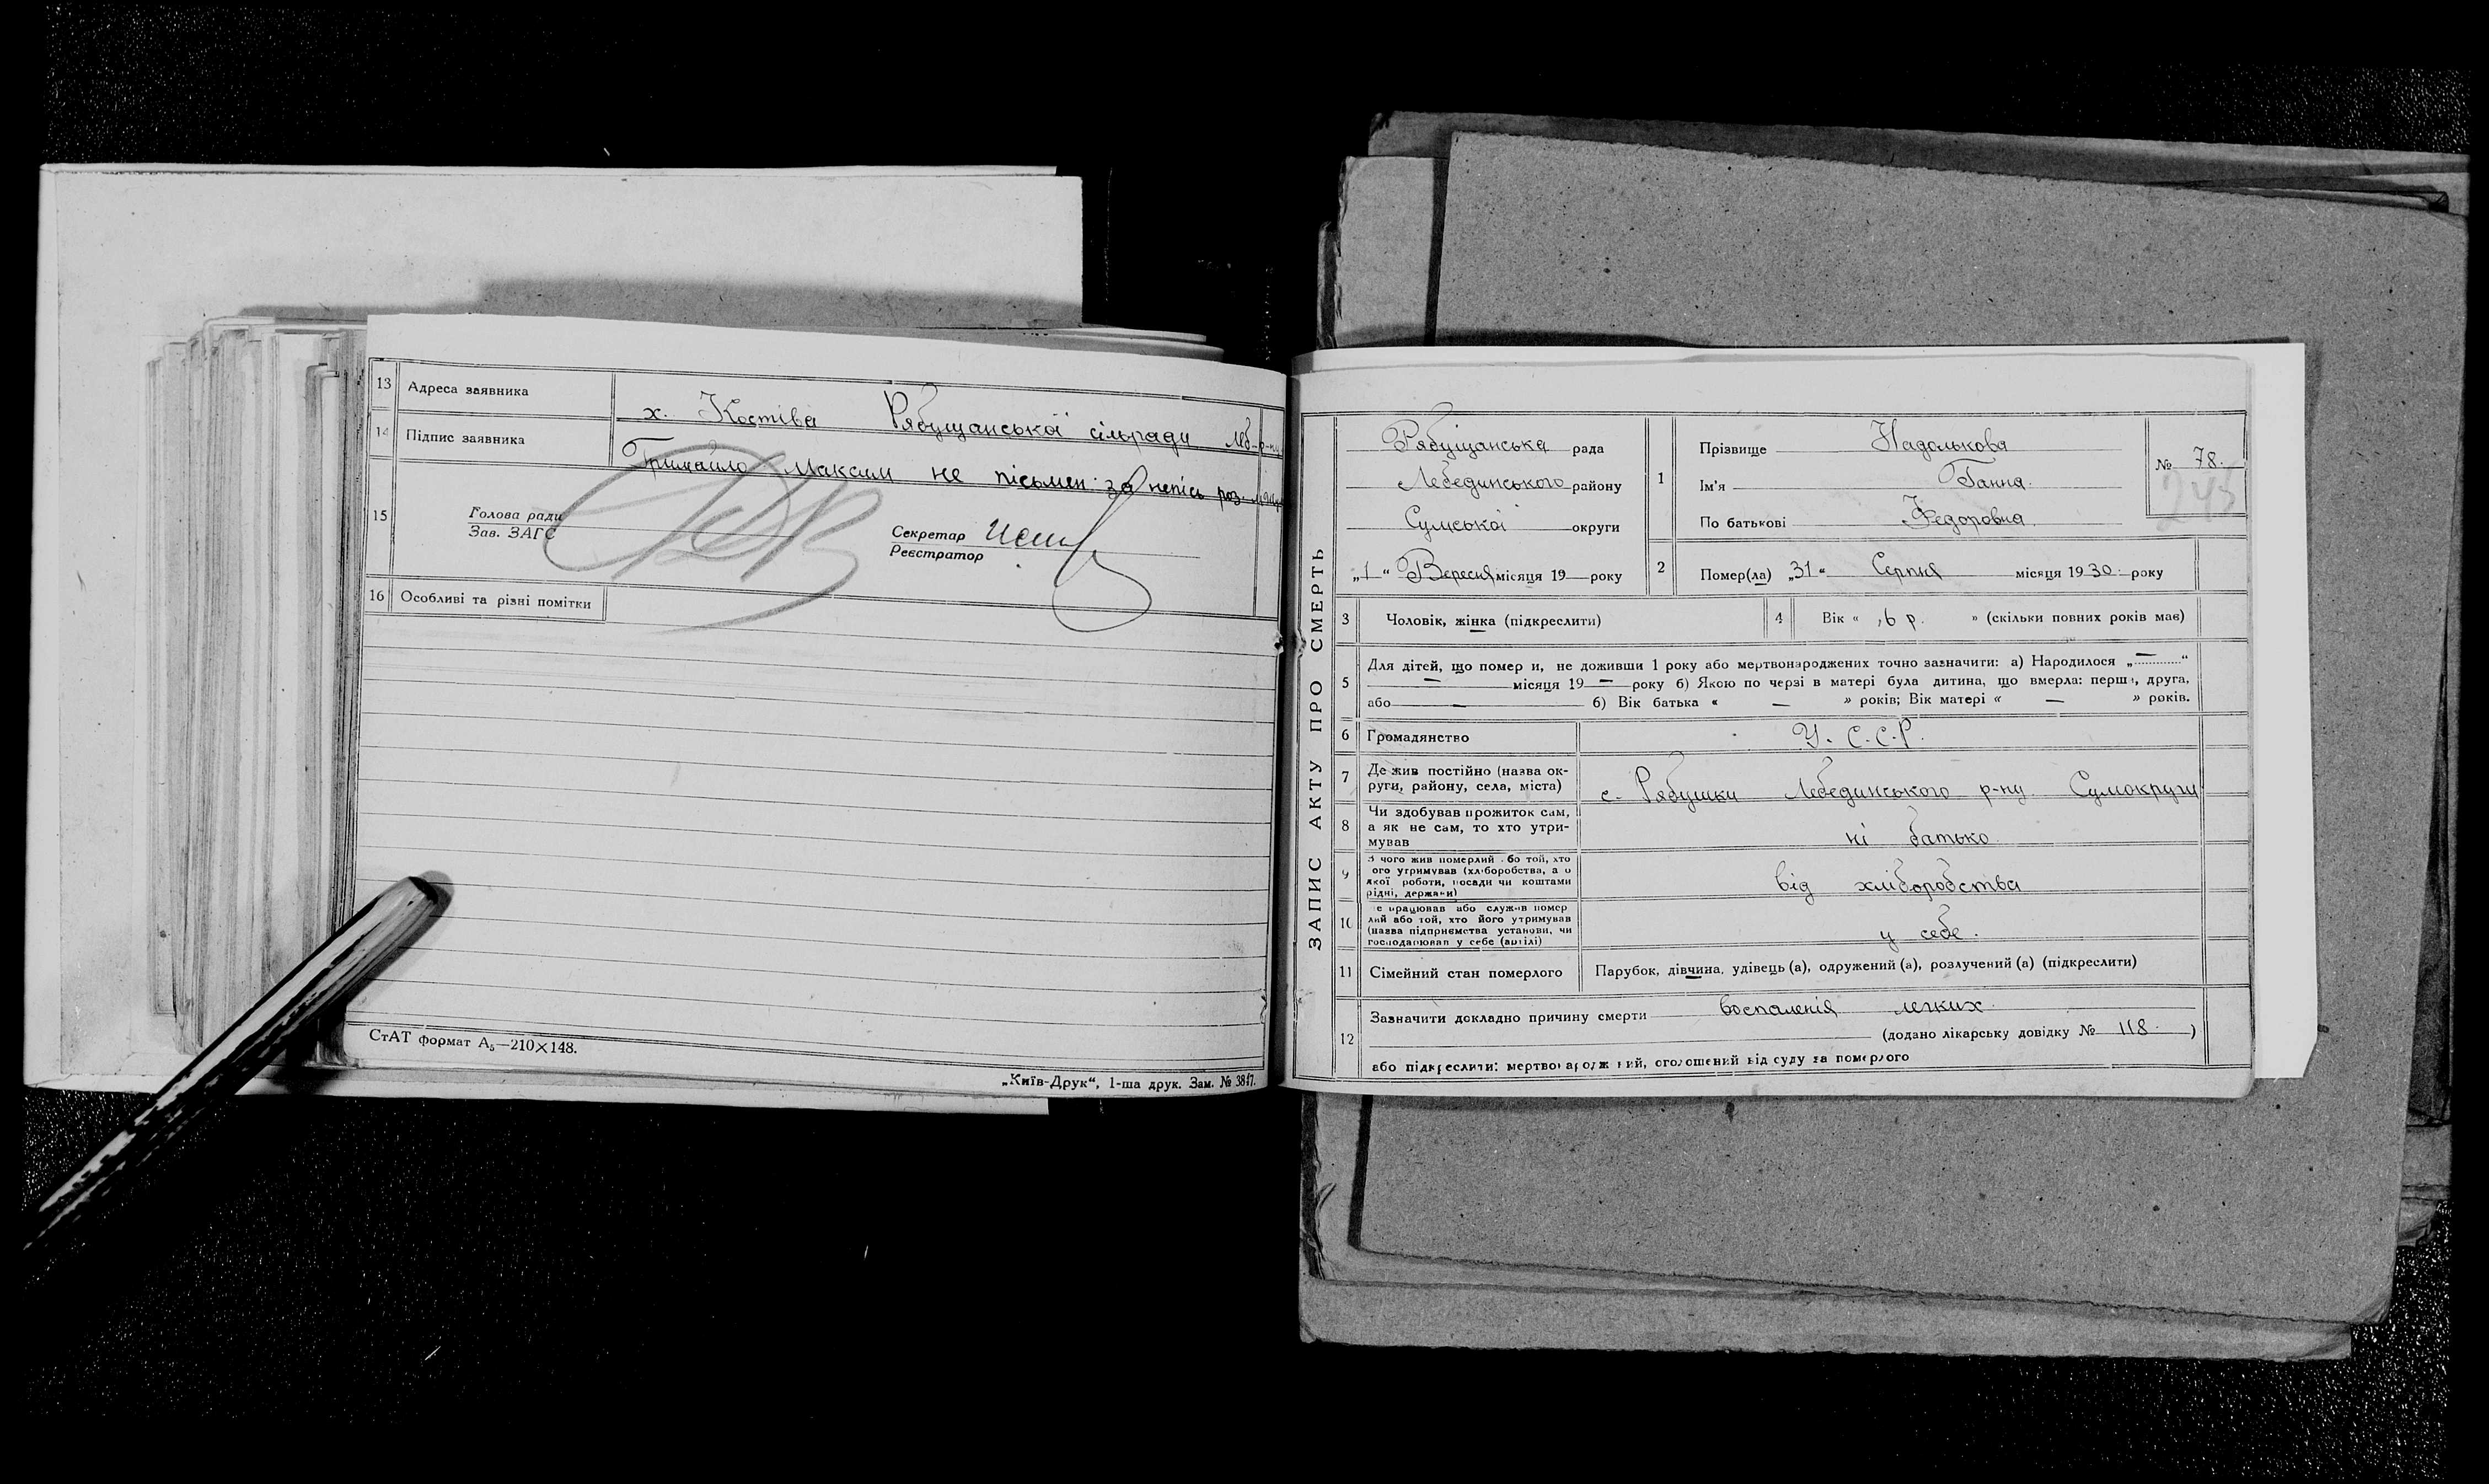 13 Адреса заявника х. Костіва Рябущанської сільради Леб-р-ну
14 Підпис заявника Гримайло Максим не пісьмен. за непісь роз.
15 Голова ради
Зав. ЗАГС
Секретар
Реєстратор
16 Особливі та різні помітки
СтАТ формат А₅—210×148.
„Київ-Друк“, 1-ша друк. Зам. № 3817.
ЗАПИС АКТУ ПРО СМЕРТЬ
Рябущанська рада
Лебединського району
Сумської округи
„1“ Вересня місяця 19 — року
1 Прізвище Надолькова
Ім'я Ганна.
По батькові Федоровна.
№ 78.
245
2 Помер(ла) „31“ Серпня місяця 1930. року
3 Чоловік, жінка (підкреслити)
4 Вік « 6 р. » (скільки повних років має)
5 Для дітей, що померли, не доживши 1 року або мертвонароджених точно зазначити: а) Народилося „—“
— місяця 19 — року б) Якою по черзі в матері була дитина, що вмерла: перша, друга,
або — б) Вік батька « — » років; Вік матері « — » років.
6 Громадянство У. С. С. Р.
7 Де жив постійно (назва округи, району, села, міста) с. Рябушки Лебединського р-ну Сумокруги
8 Чи здобував прожиток сам,
а як не сам, то хто утримував
ні батько
9 З чого жив померлий або той, хто
його утримував (хліборобства, а о
якої роботи, посади чи коштами
рідні, держави)
від хліборобства
10 Де працював або служив померлий або той, хто його утримував
(назва підприємства установи, чи
господарював у себе (артілі)
у себе.
11 Сімейний стан померлого Парубок, дівчина, удівець (а), одружений (а), розлучений (а) (підкреслити)
12 Зазначити докладно причину смерти воспаленія легких.
(додано лікарську довідку № 118. )
або підкреслити: мертвонароджений, оголошений від суду за померлого